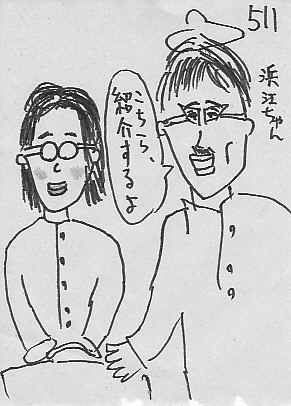 511
浜江ちゃん
こちら、
紹介するよ